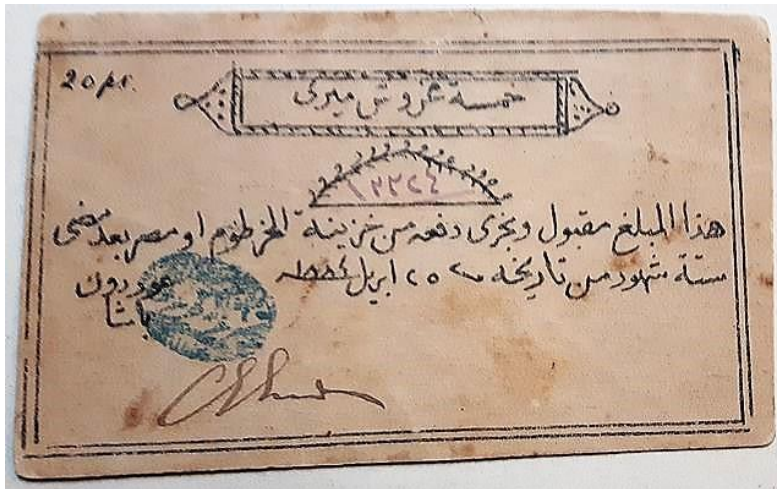 20 pr.
خمسة غروش ميرى
١٢٢٢٤
هذا المبلغ مقبول ويجرى دفعه من خزينة الخرطوم او مصر بعد مضى
ستة شهور من تاريخه ٢٥ ابريل سنة ١٨٨٤
غوردون
باشا